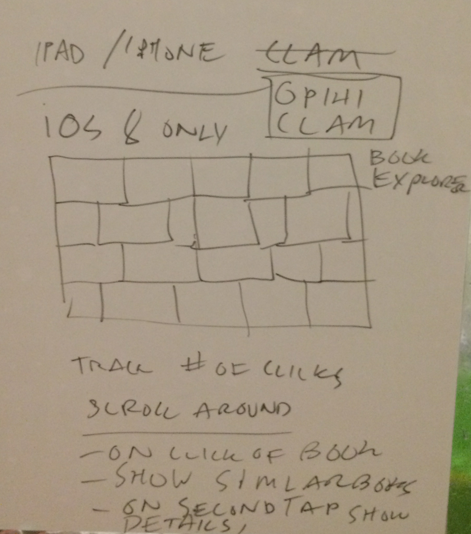 IPAD / IPHONE CLAM
OPIHI
CLAM
iOS 8 ONLY
BOOK
EXPLORER
TRACK # OF CLICKS
SCROLL AROUND
- ON CLICK OF BOOK
- SHOW SIMILAR BOOKS
- ON SECOND TAP SHOW
DETAILS,